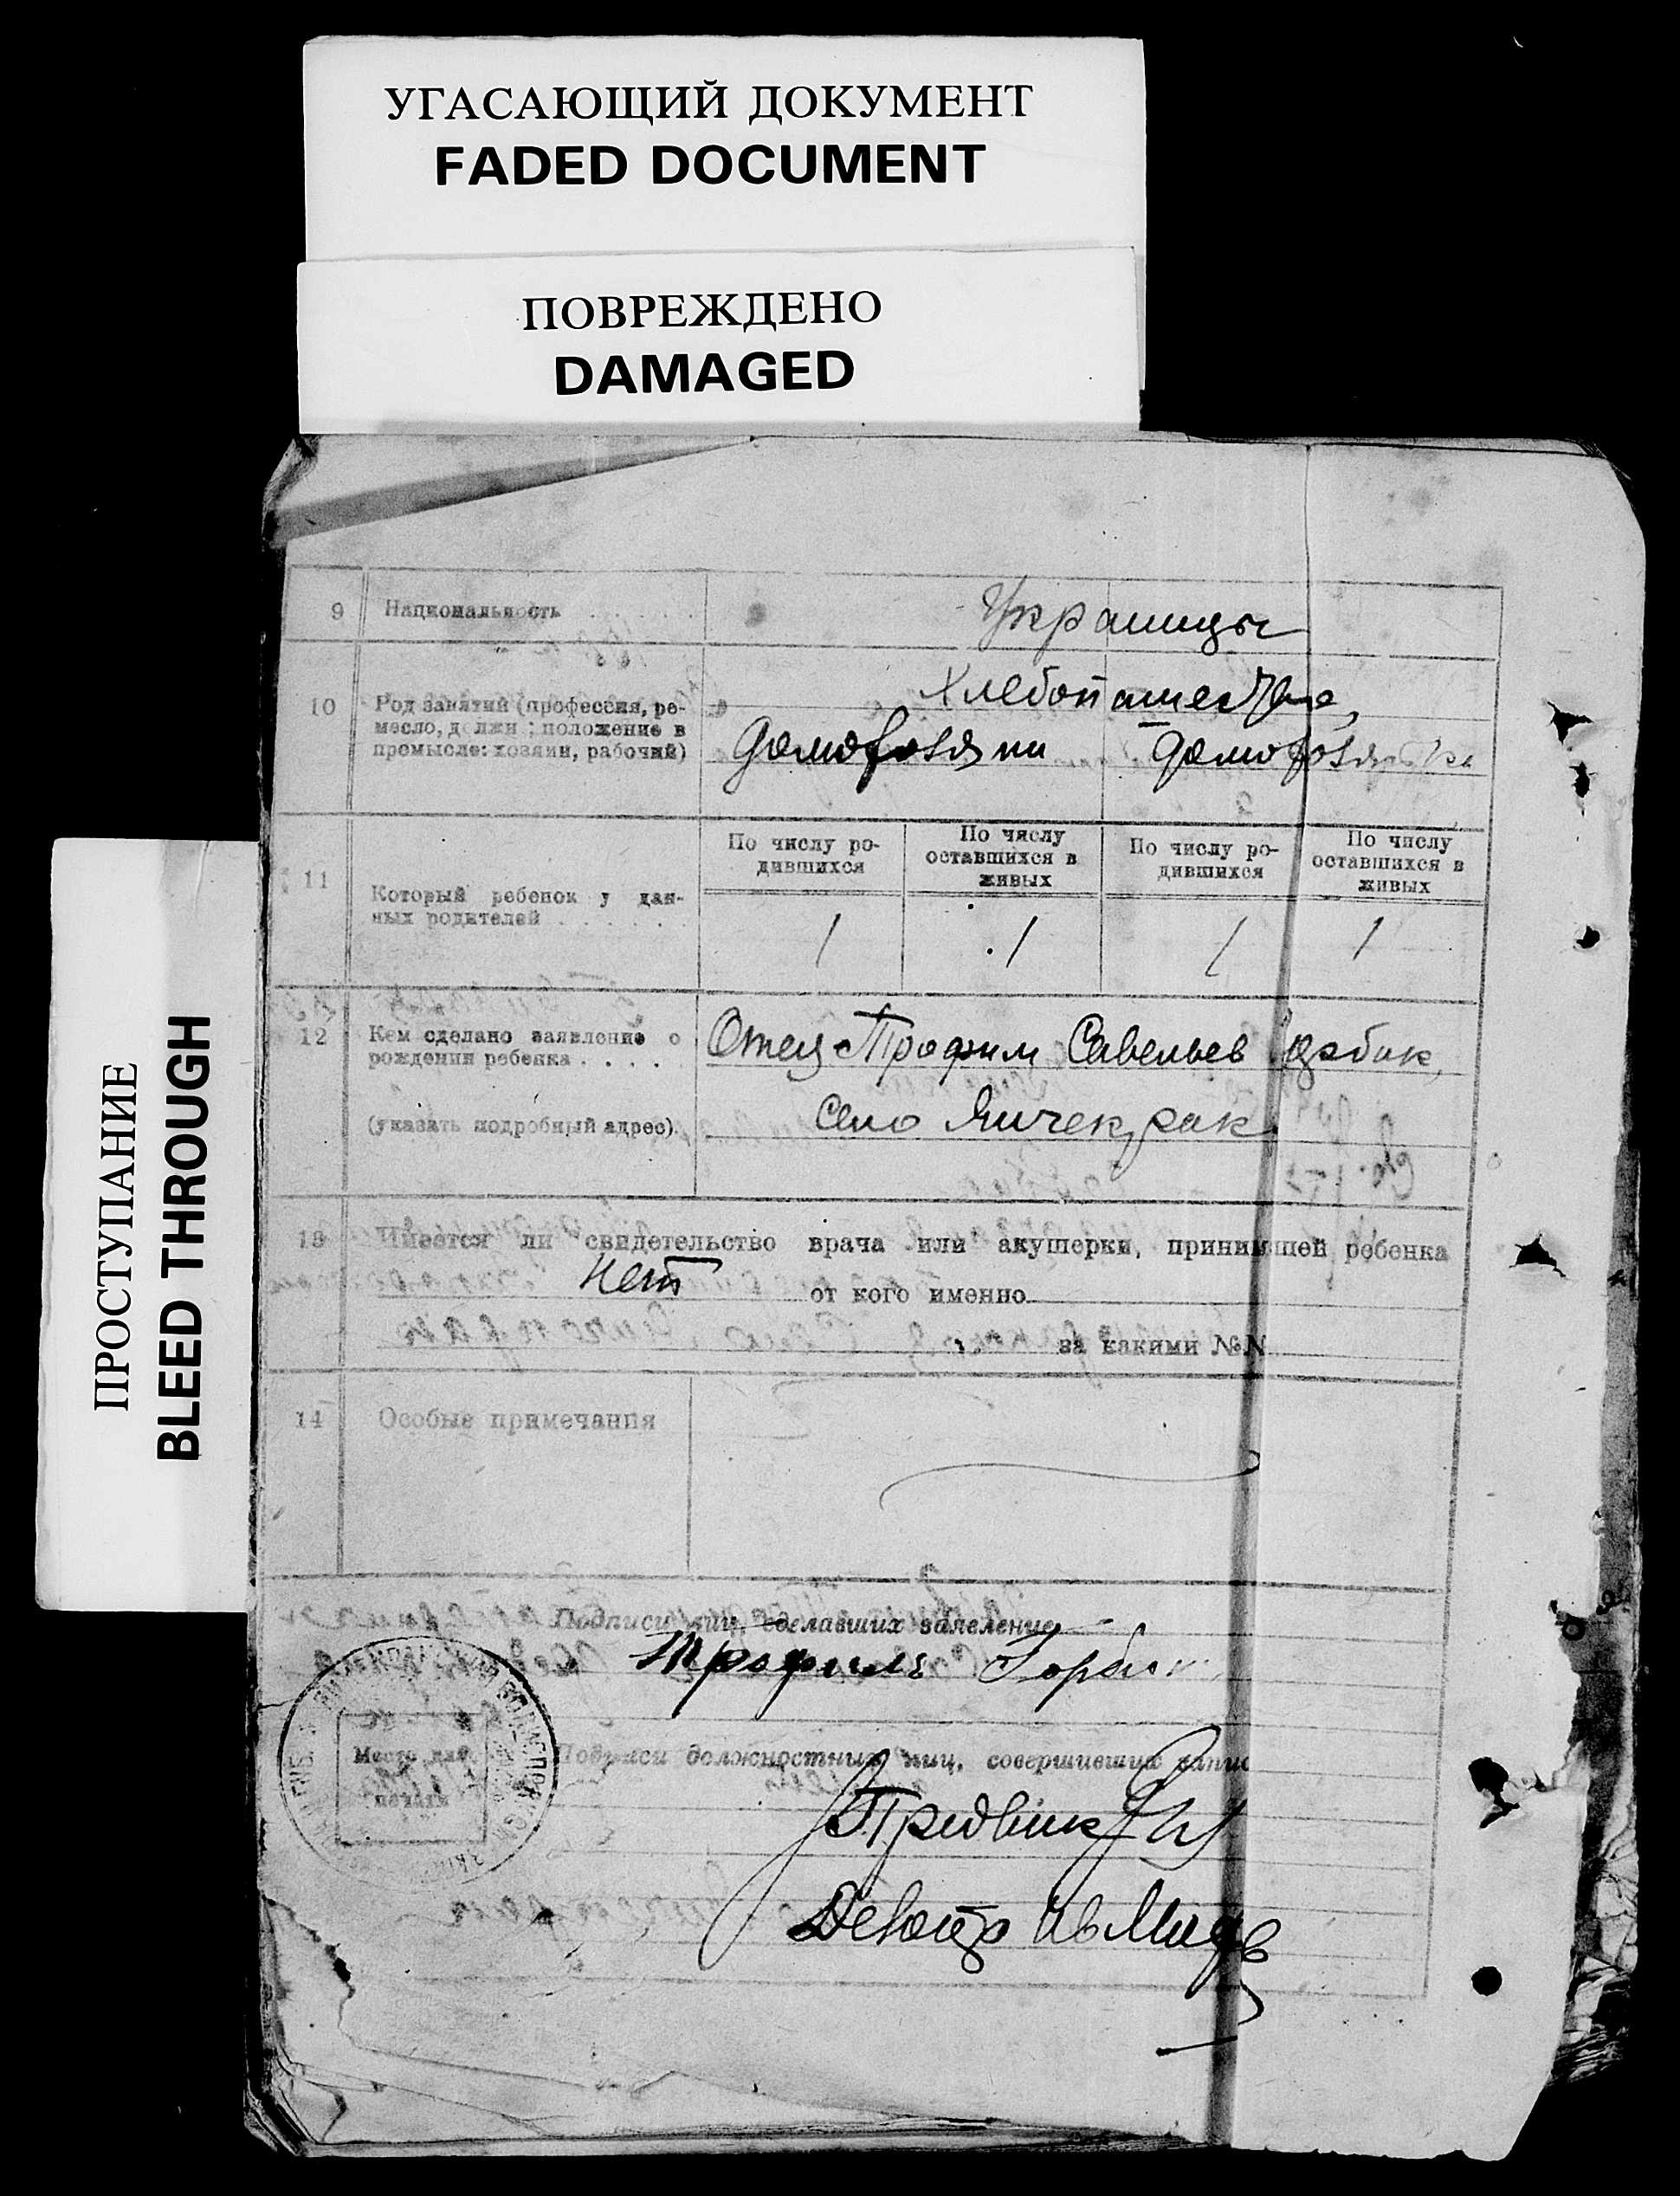 УГАСАЮЩИЙ ДОКУМЕНТ
FADED DOCUMENT
ПОВРЕЖДЕНО
DAMAGED
ПРОСТУПАНИЕ
BLEED THROUGH
9 Национальность
Украинцы
10 Род занятий (профессия, ре-
месло, должн; положение в
промысле: хозяин, рабочий)
Хлебопашество,
домохозяин домохозяйка
11 Который ребенок у дан-
ных родителей
По числу ро-
дившихся
По числу
оставшихся в
живых
По числу ро-
дившихся
По числу
оставшихся в
живых
1 1 1 1
12 Кем сделано заявление о
рождении ребенка
(указать подробный адрес).
Отец Трофим Савельев
село Янчекрак
13 Имеется ли свидетельство врача или акушерки, принимшей ребенка
нет от кого именно
за какими №N
14 Особые примечания
Подписи лиц, сделавших заявление
Трофимъ Горби
Подписи должностных лиц, совершивших запис
Место для
печати